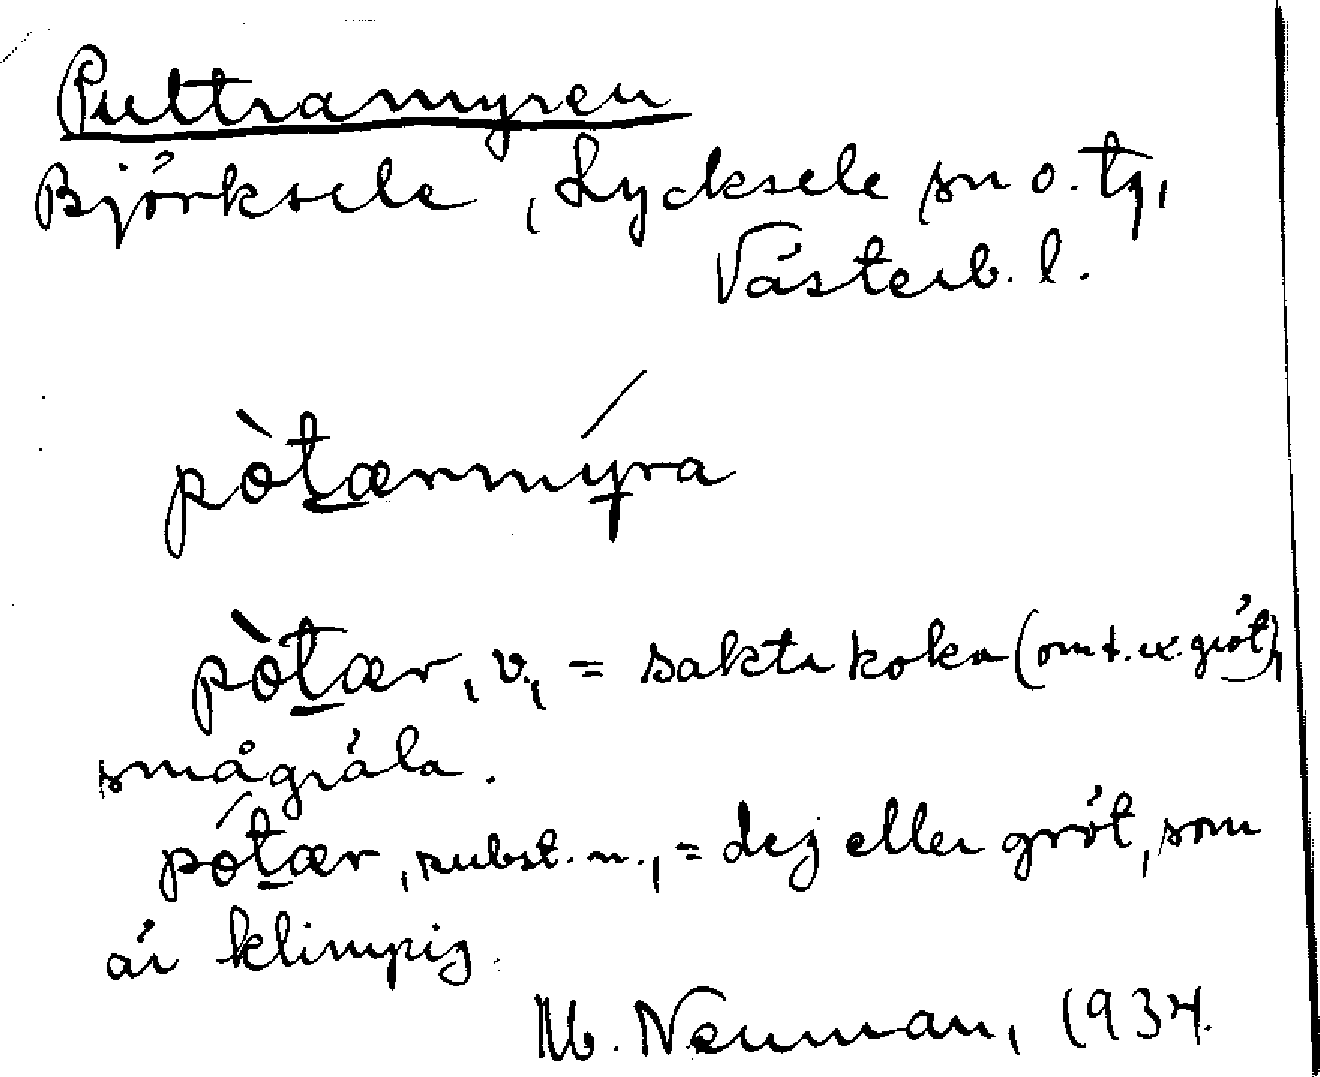 Puttramyren
Björksele, Lycksele sn o. tg,
Västerb. l.
pòtærmýra
pòtær, v., = sakta koka (om t. ex. gröt),
smågräla.
pótær, subst. n., = dej eller gröt, som
är klimpig.
M. Neuman, 1934.